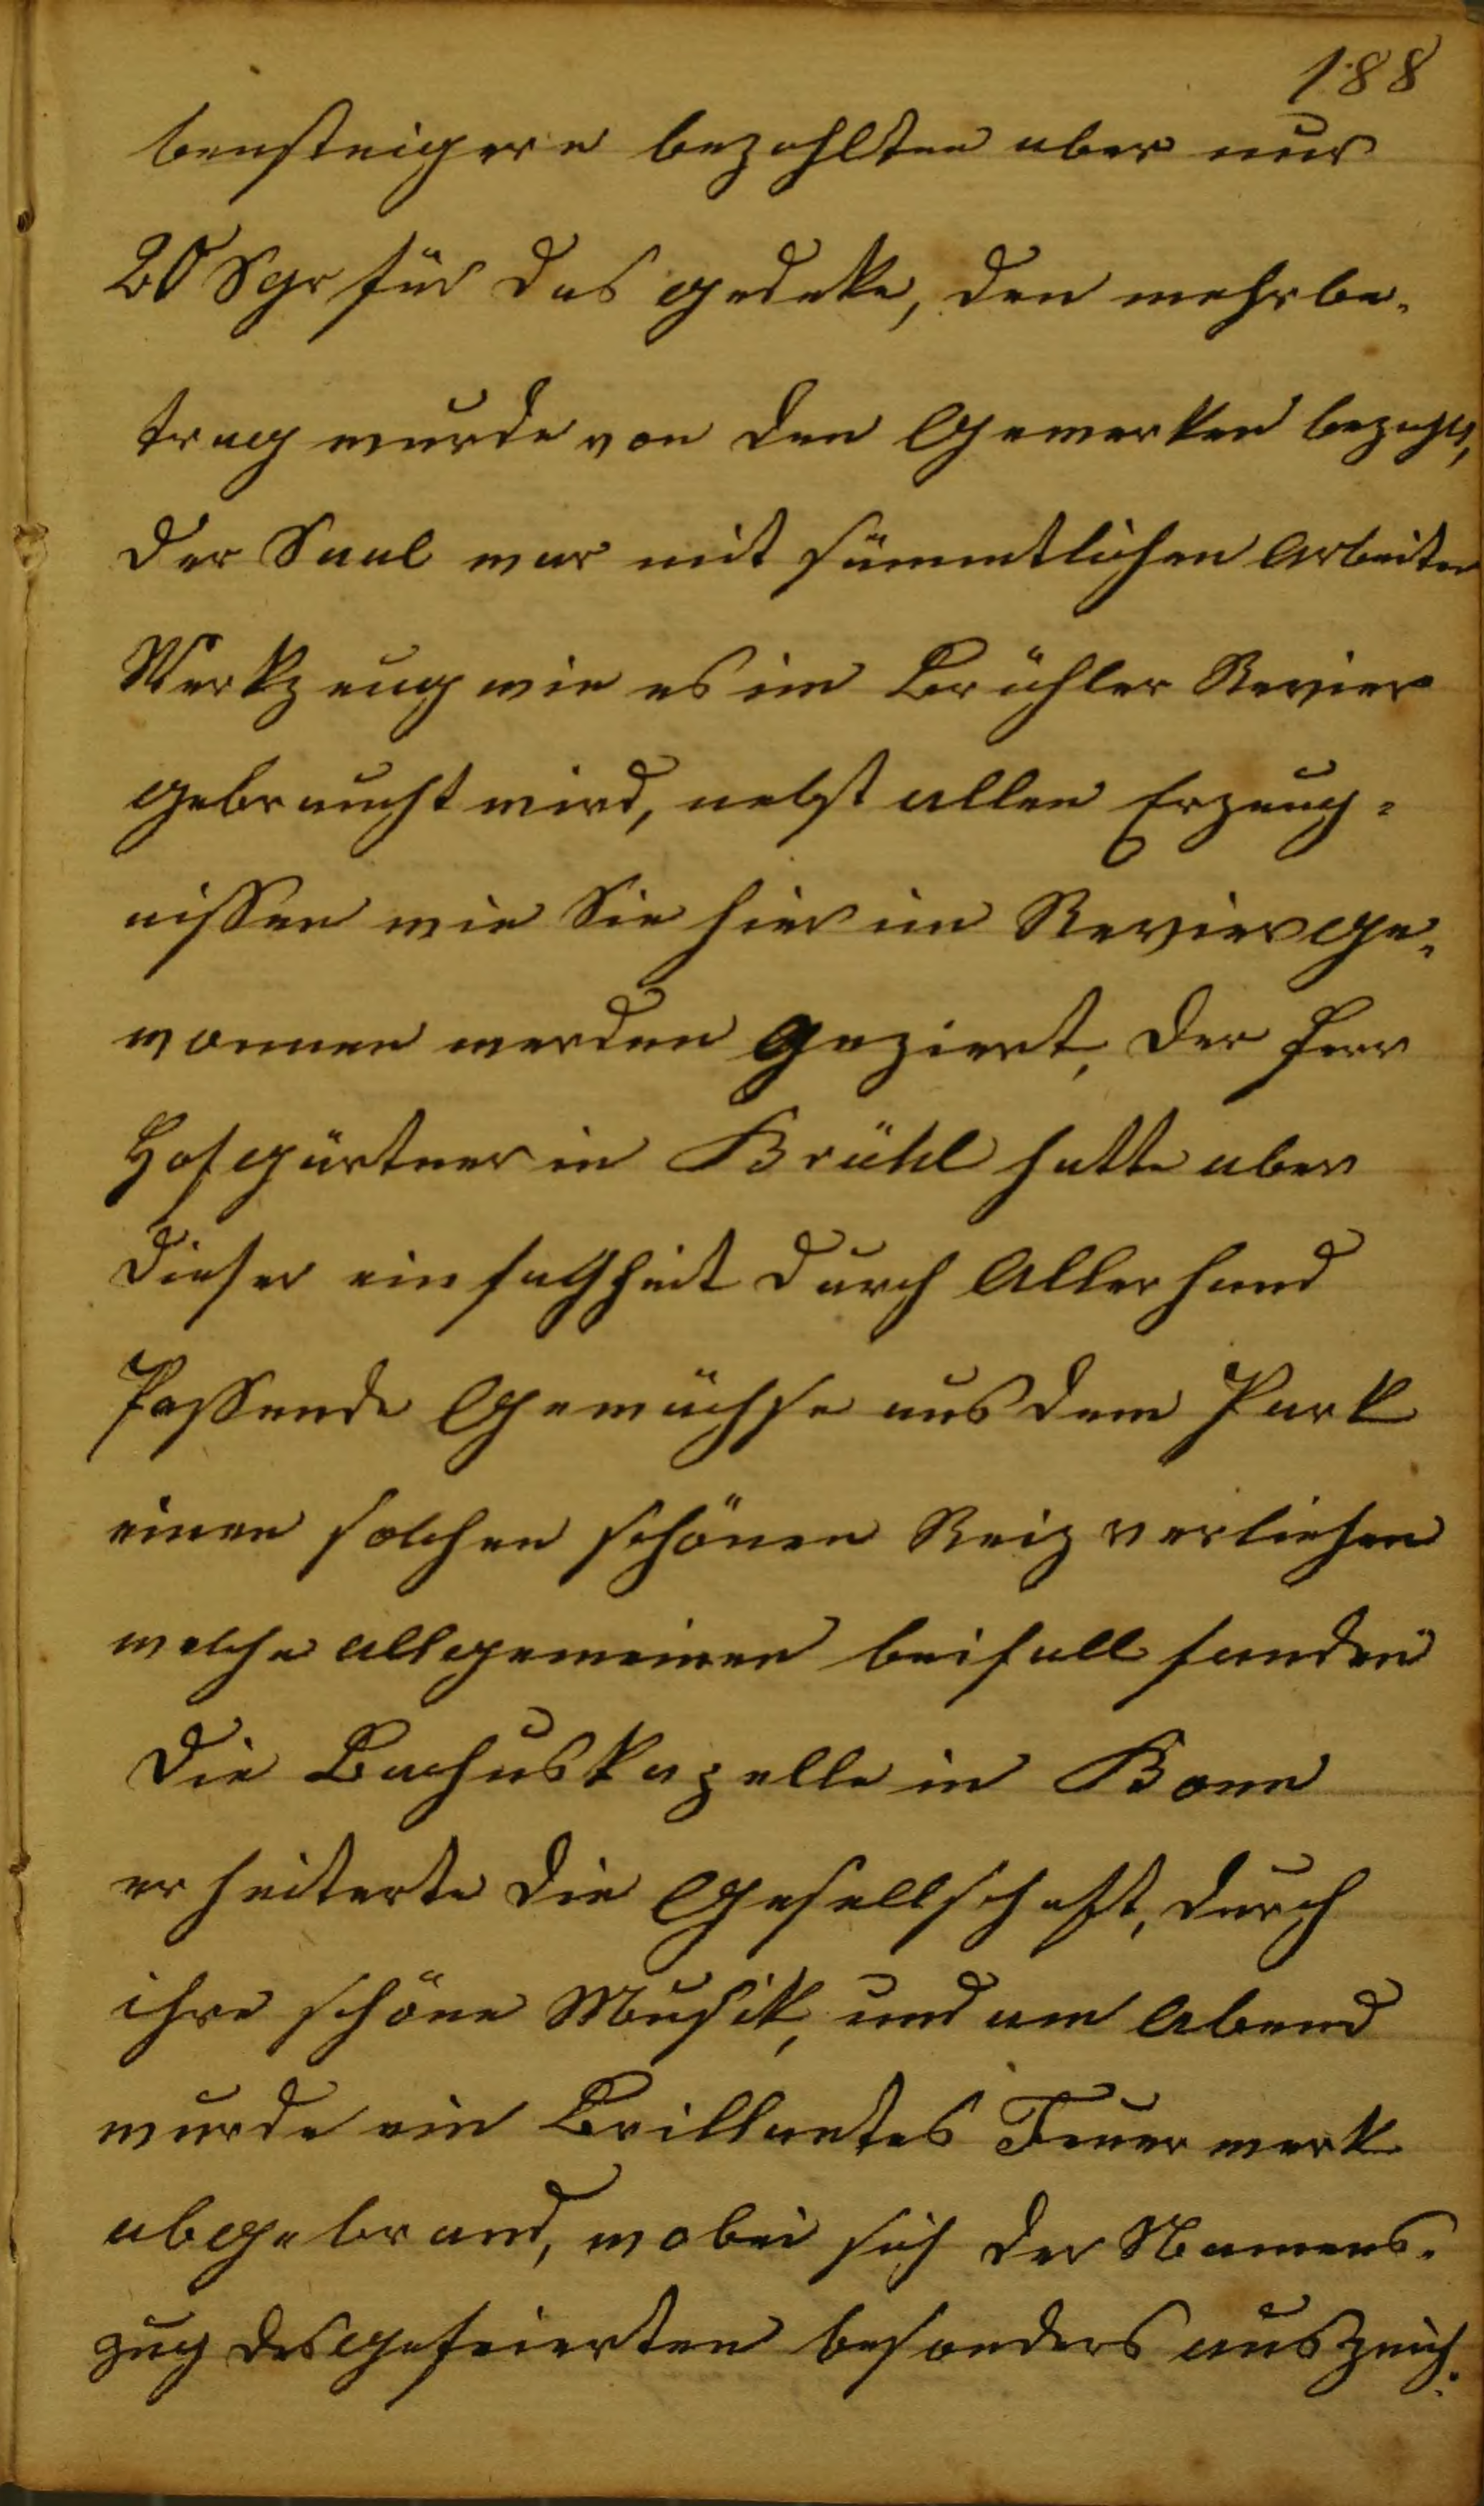 188
bensteigere bezahlten aber nur
20 Sgr für das gedeke, den mehrbe-
trag wurde von den Gewerken bezahlt,
der Saal war mit sämmtlichen Arbeiter
Werkzeug wie es im Brühler Revier
gebraucht wird, nebst allen Erzeug-
nissen wie Sie hier im Revier ge-
wonnen werden geziert, der Herr
Hofgärtner in Brühl hatte aber
dieser einfachheit durch Allerhand
Passende Gewächse aus dem Park
einen solchen schönen Reiz verliehen
welche allgemeinen beifall fanden
die Bachuskapelle in Bonn
erheiterte die Gesellschaft, durch
ihre schöne Musik, und am Abend
wurde ein Brillantes Feuerwerk
abgebrand, wobei sich der Namens-
zug des gefeierten besonders auszeich-